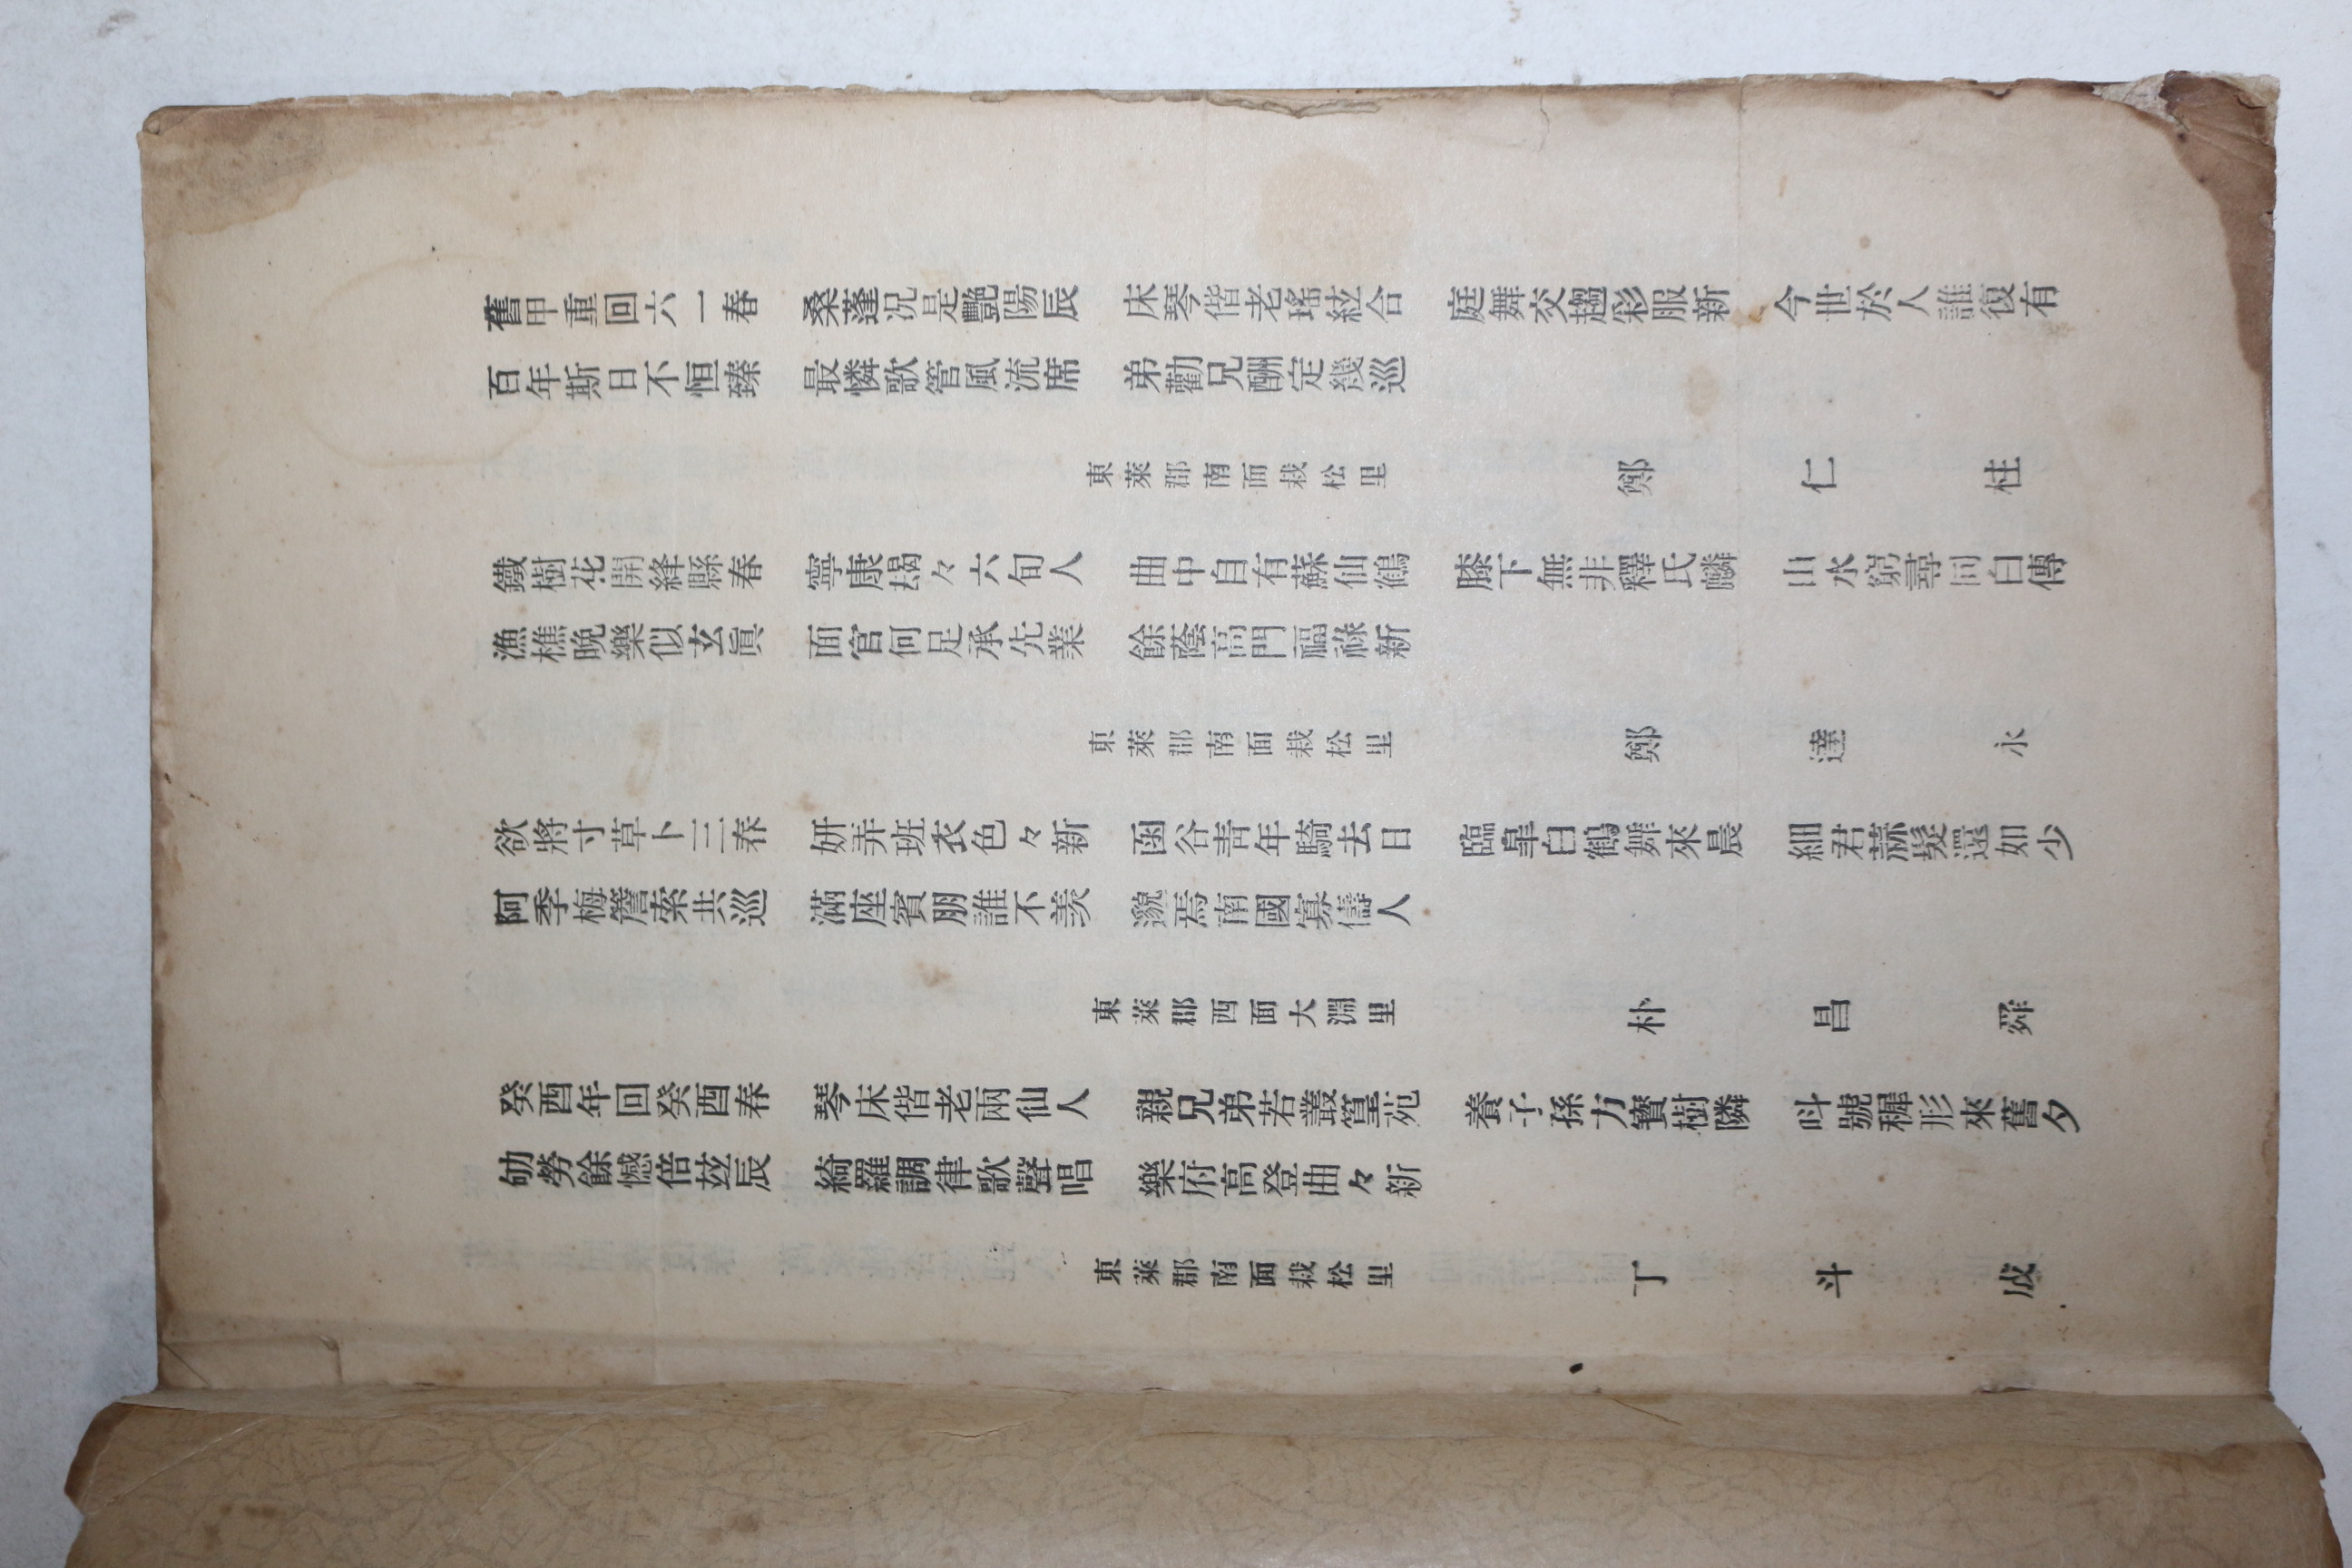 舊甲重回六一春 桑蓬況是艷陽辰 床琴偕老瑤絃合 庭舞交趨彩服新 今世於人誰復有
百年斯日不恒臻 最憐歌管風流席 弟勸兄酬定幾巡
東萊郡南面栽松里 鄭 仁 柱
鐵樹花開絳縣春 寧康朅々六旬人 曲中自有蘇仙鶴 膝下無非釋氏麟 山水窮尋同白傳
漁樵晩樂似玄眞 面官何足承先業 餘蔭高門福祿新
東萊郡南面栽松里 鄭 達 永
欲將寸草卜三春 妍弄班衣色々新 函谷靑年騎去日 臨皐白鶴舞來晨 細君蒜髮還如少
阿季梅簷索共巡 滿座賓朋誰不羡 邈焉南國寡儔人
東萊郡西面大淵里 朴 昌 舜
癸酉年回癸酉春 琴床偕老兩仙人 親兄弟若叢篁苑 養子孫力寶樹隣 呌號穉形來舊夕
劬勞餘憾倍玆辰 綺羅調律歌聲唱 樂府高登曲々新
東萊郡南面栽松里 丁 斗 成